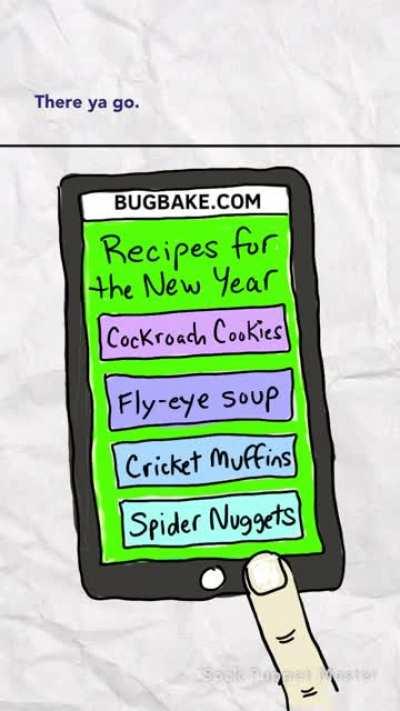 There ya go.
BUGBAKE.COM
Recipes for
the New Year
Cockroach Cookies
Fly-eye soup
Cricket Muffins
Spider Nuggets
Sock Puppet Master